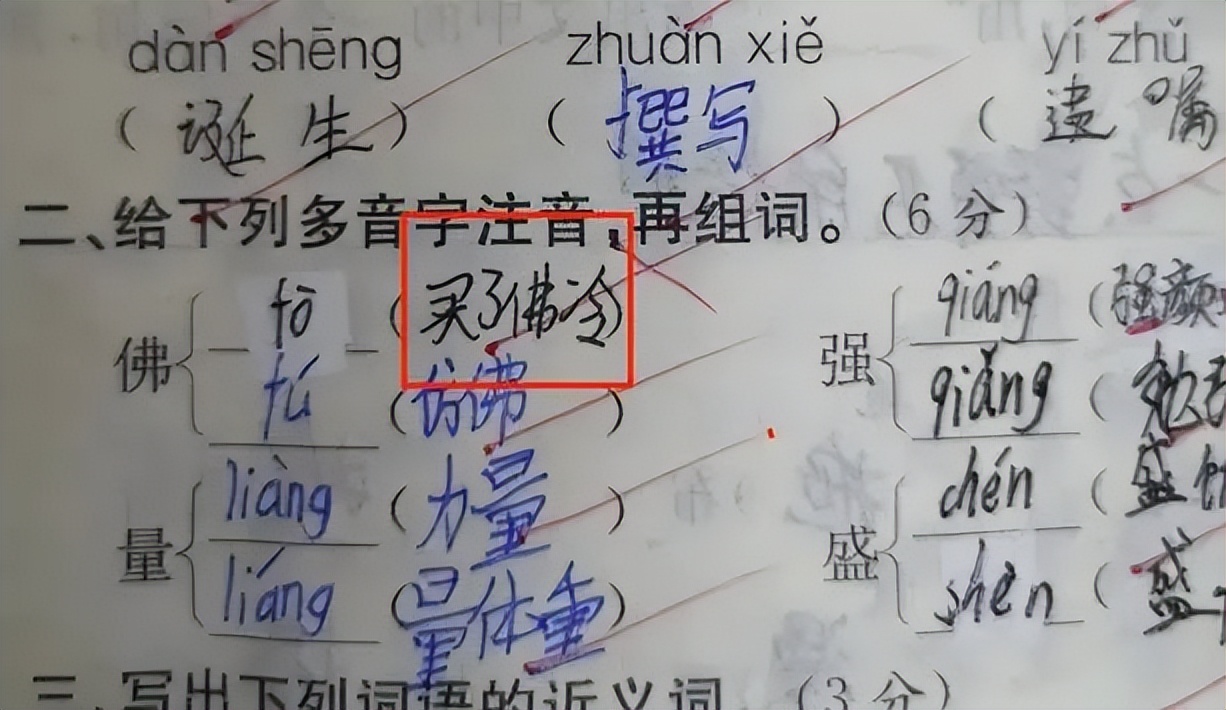 dàn shēng zhuàn xiě yí zhǔ
(诞生) (撰写) (遗嘱
二、给下列多音字注音,再组词。(6分)
佛 fō (买了佛冷)
fú (仿佛)
量 liàng (力量)
liáng (量体重)
强 qiáng (强颜
qiǎng (
盛 chén (盛
shèn (盛
三、写出下列词语的近义词。(3分)